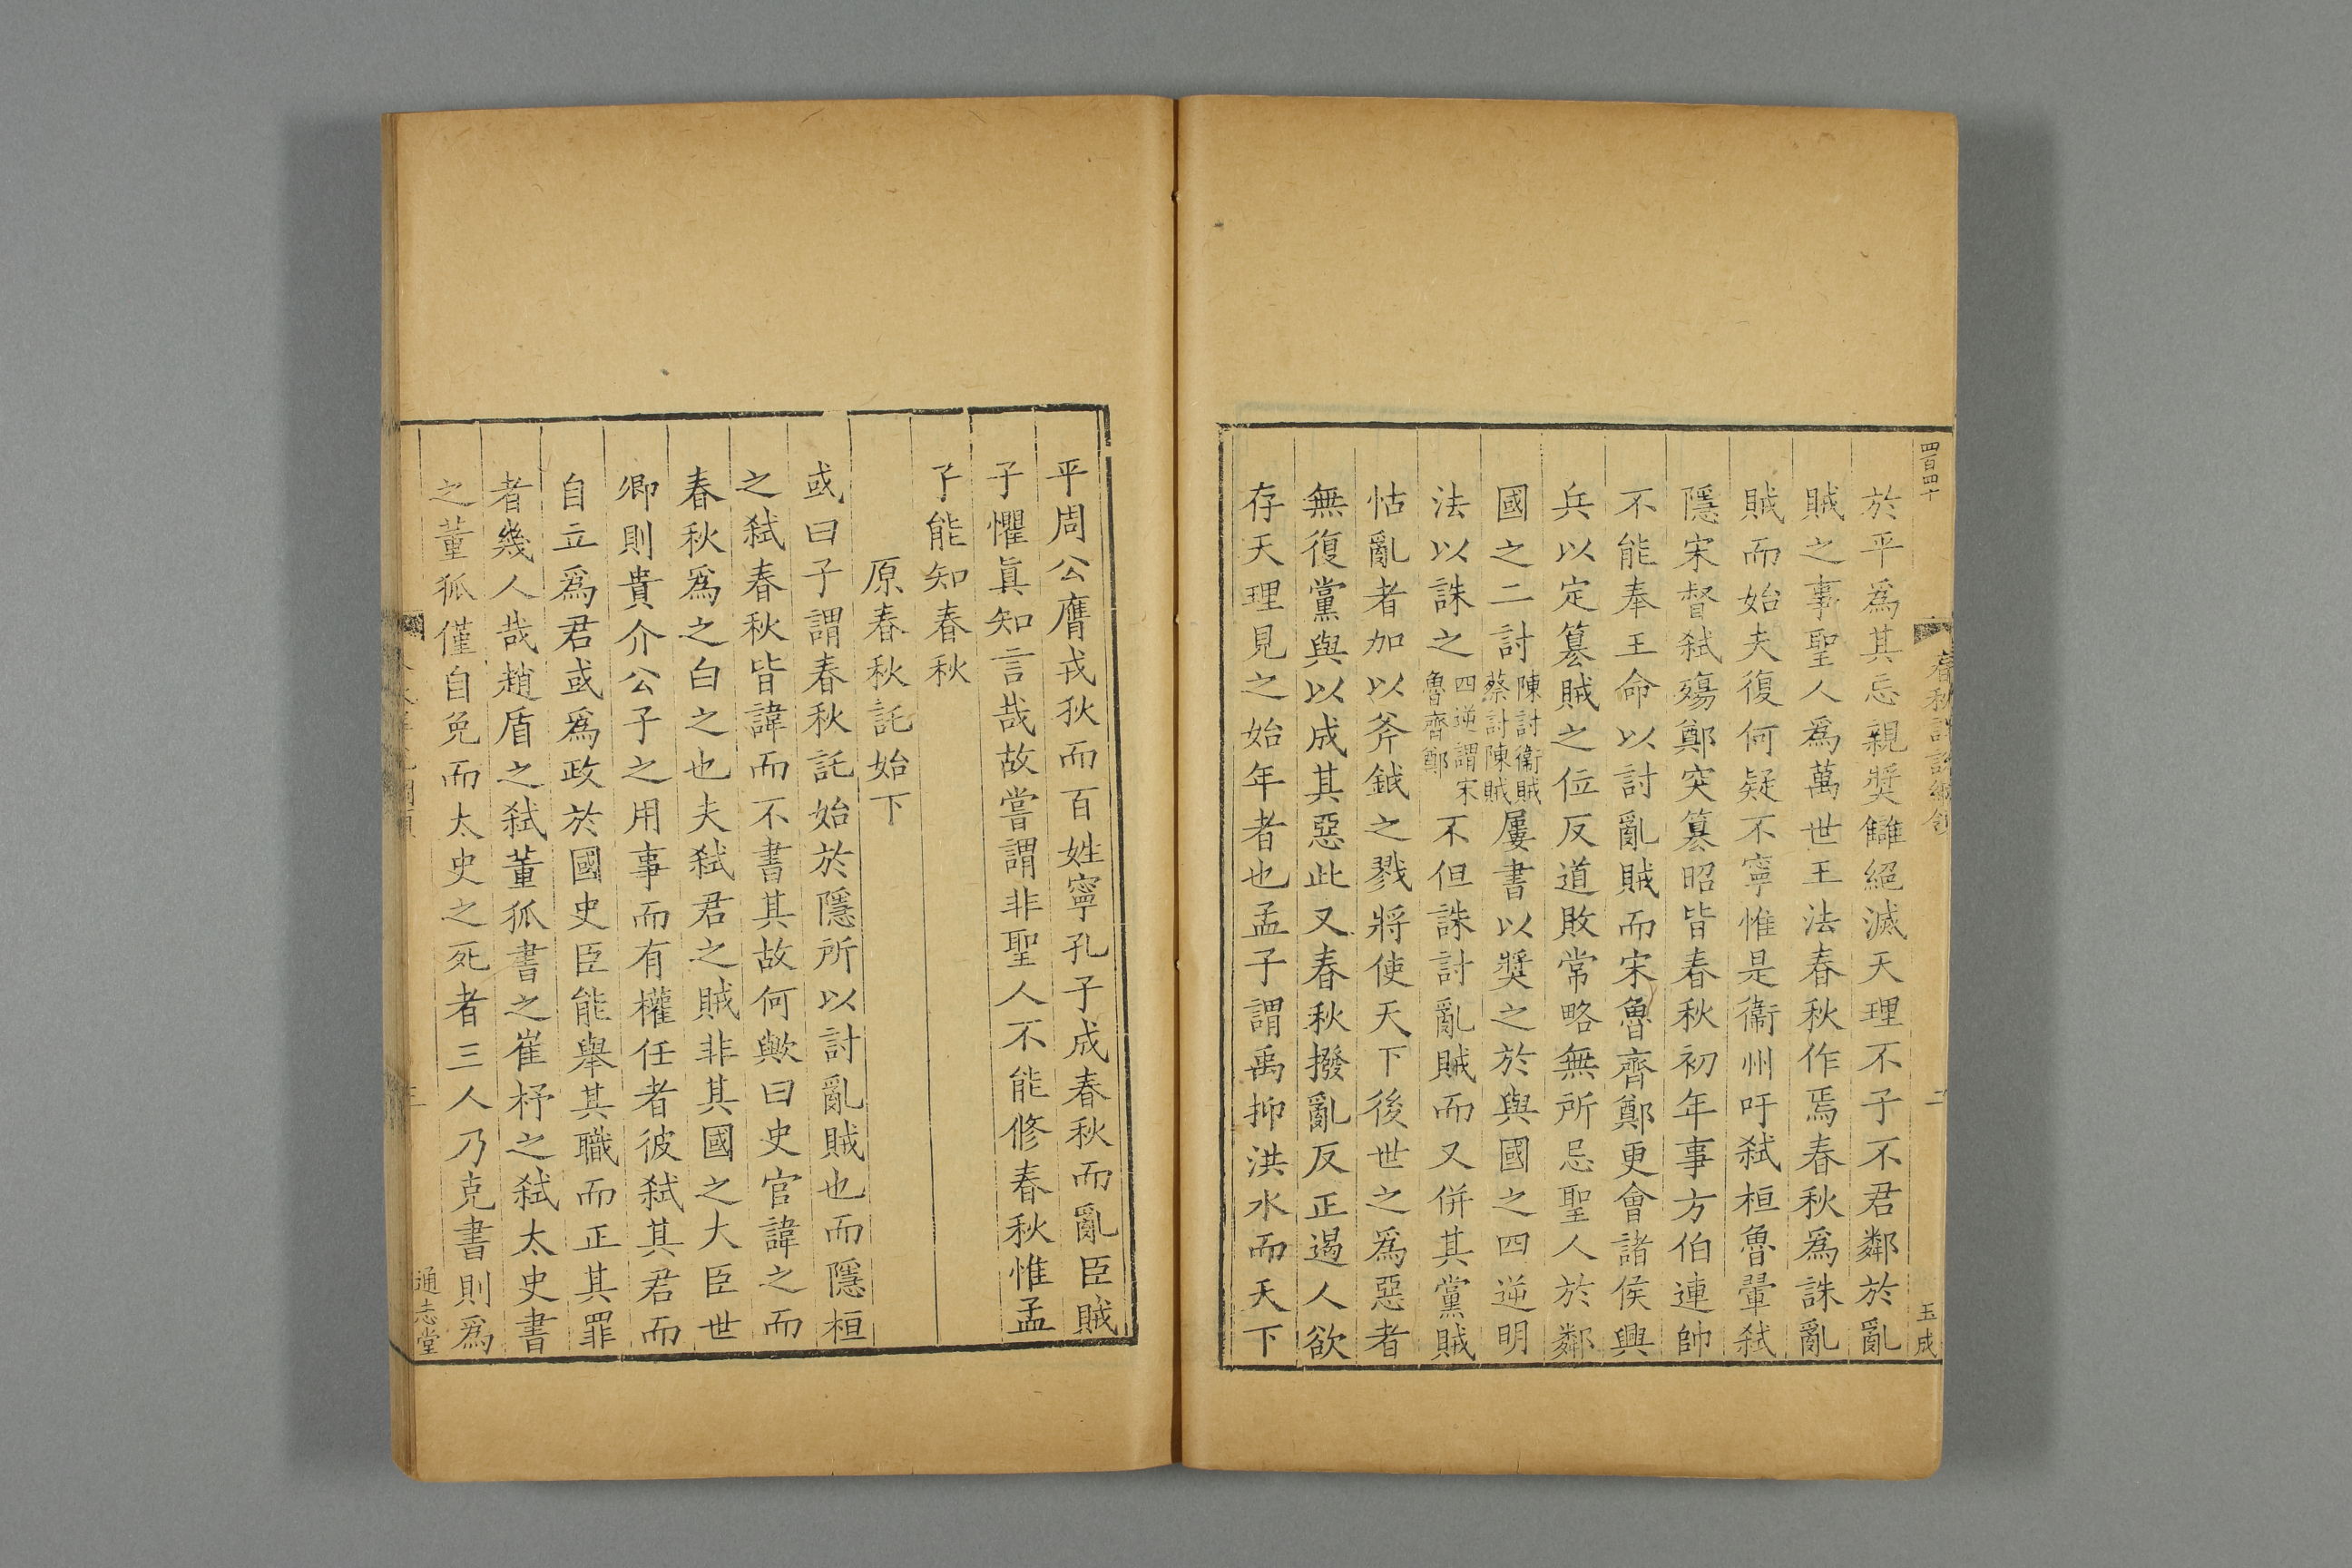 四百四十
春秋詳說綱領
二
玉成
於平爲其忘親奬讎絕滅天理不子不君鄰於亂
賊之事聖人爲萬世王法春秋作焉春秋爲誅亂
賊而始夫復何疑不寧惟是衞州吁弑桓魯翬弑
隱宋督弑殤鄭突簒昭皆春秋初年事方伯連帥
不能奉王命以討亂賊而宋魯齊鄭更會諸侯興
兵以定簒賊之位反道敗常略無所忌聖人於鄰
國之二討陳討衞賊蔡討陳賊屢書以奬之於與國之四逆明
法以誅之四逆謂宋魯齊鄭不但誅討亂賊而又併其黨賊
怙亂者加以斧鉞之戮將使天下後世之爲惡者
無復黨與以成其惡此又春秋撥亂反正遏人欲
存天理見之始年者也孟子謂禹抑洪水而天下
平周公膺戎狄而百姓寧孔子成春秋而亂臣賊
子懼眞知言哉故嘗謂非聖人不能修春秋惟孟
子能知春秋
原春秋託始下
或曰子謂春秋託始於隱所以討亂賊也而隱桓
之弑春秋皆諱而不書其故何歟曰史官諱之而
春秋爲之白之也夫弑君之賊非其國之大臣世
卿則貴介公子之用事而有權任者彼弑其君而
自立爲君或爲政於國史臣能舉其職而正其罪
者幾人哉趙盾之弑董狐書之崔杼之弑太史書
之董狐僅自免而太史之死者三人乃克書則爲
通志堂